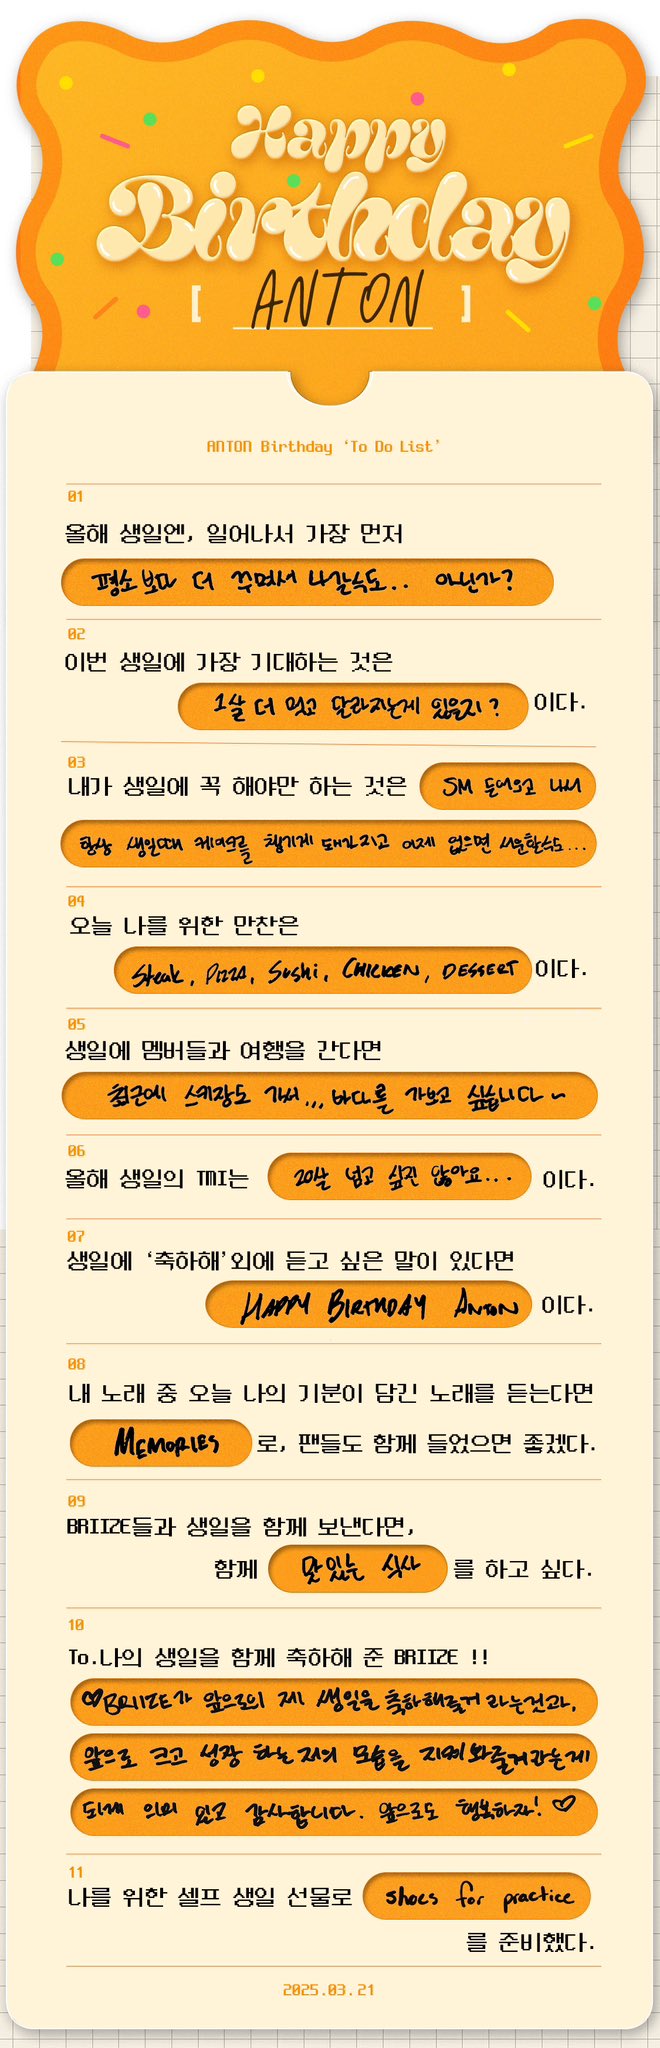 Happy
Birthday
[ ANTON ]
ANTON Birthday ‘To Do List’
01
올해 생일엔, 일어나서 가장 먼저
평소보다 더 꾸며서 나갈수도.. 아닌가?
02
이번 생일에 가장 기대하는 것은
1살 더 먹고 달라지는게 있을지? 이다.
03
내가 생일에 꼭 해야만 하는 것은 SM 들어오고 나서
항상 생일때 케이크를 챙기게 돼가지고 이제 없으면 서운할수도...
04
오늘 나를 위한 만찬은
Steak, PIZZA, Sushi, CHICKEN, DESSERT 이다.
05
생일에 멤버들과 여행을 간다면
최근에 스키장도 가서,,, 바다를 가보고 싶습니다~
06
올해 생일의 TMI는 20살 넘고 싶진 않아요... 이다.
07
생일에 ‘축하해’외에 듣고 싶은 말이 있다면
HAPPY BIRTHDAY ANTON 이다.
08
내 노래 중 오늘 나의 기분이 담긴 노래를 듣는다면
MEMORIES 로, 팬들도 함께 들었으면 좋겠다.
09
BRIIZE들과 생일을 함께 보낸다면,
함께 맛있는 식사 를 하고 싶다.
10
To.나의 생일을 함께 축하해 준 BRIIZE !!
♡BRIIZE가 앞으로의 제 생일을 축하해줄거 라는것과,
앞으로 크고 성장 하는 저의 모습을 지켜봐줄거라는게
되게 의미 있고 감사합니다. 앞으로도 행복하자! ♡
11
나를 위한 셀프 생일 선물로 shoes for practice
를 준비했다.
2025.03.21